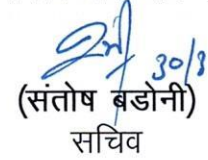 30/8
(संतोष बडोनी)
सचिव